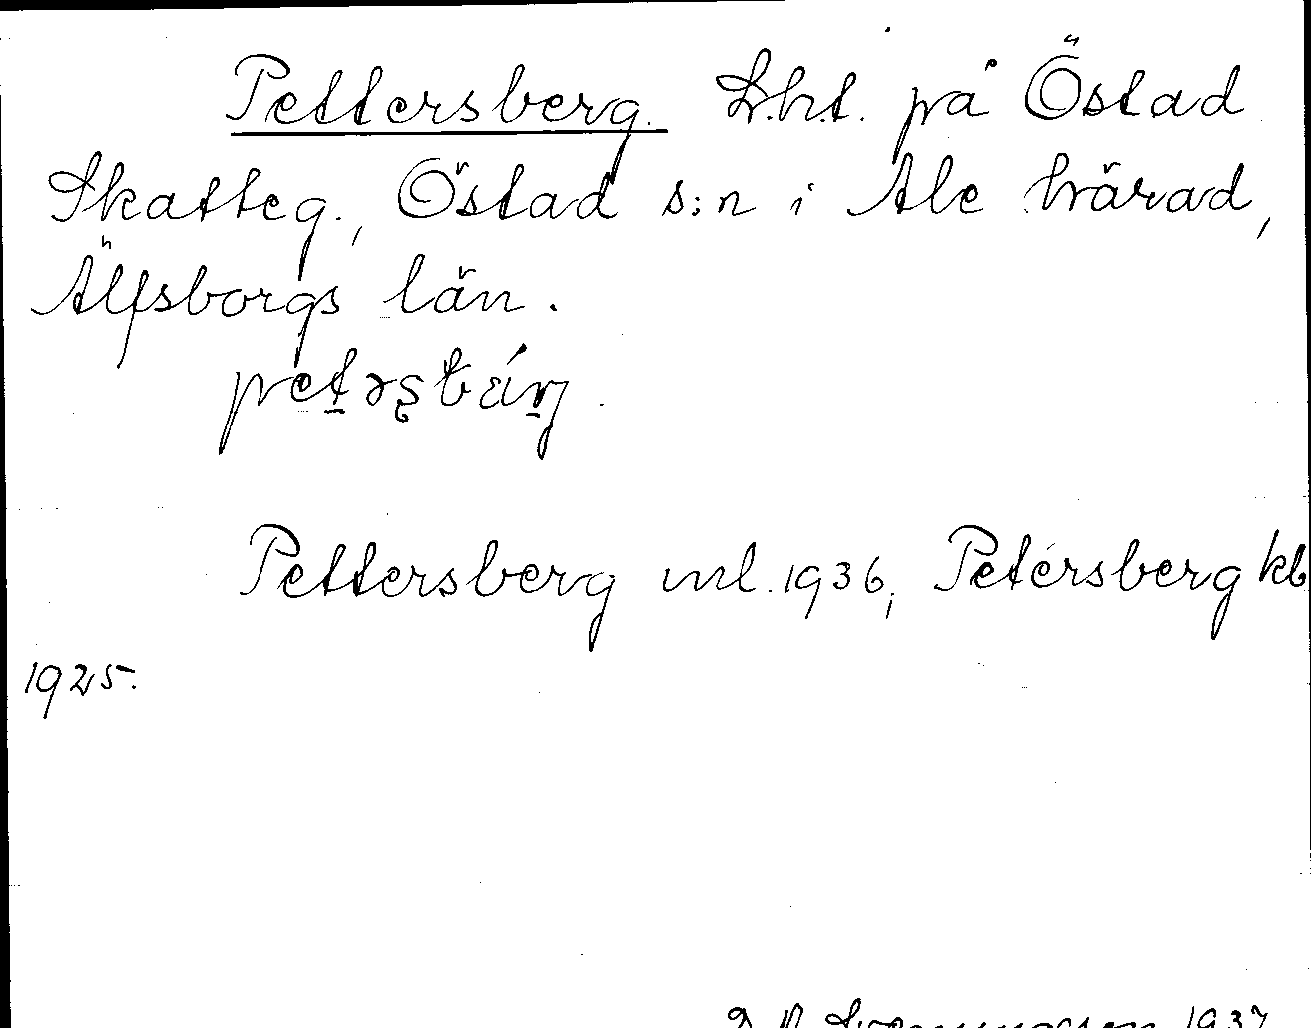 Pettersberg. L.h.t. på Östad
Skatteg., Östad s:n i Ale härad,
Älfsborgs län.
Pettersberg ml. 1936, Petersberg kb
1925.
1937